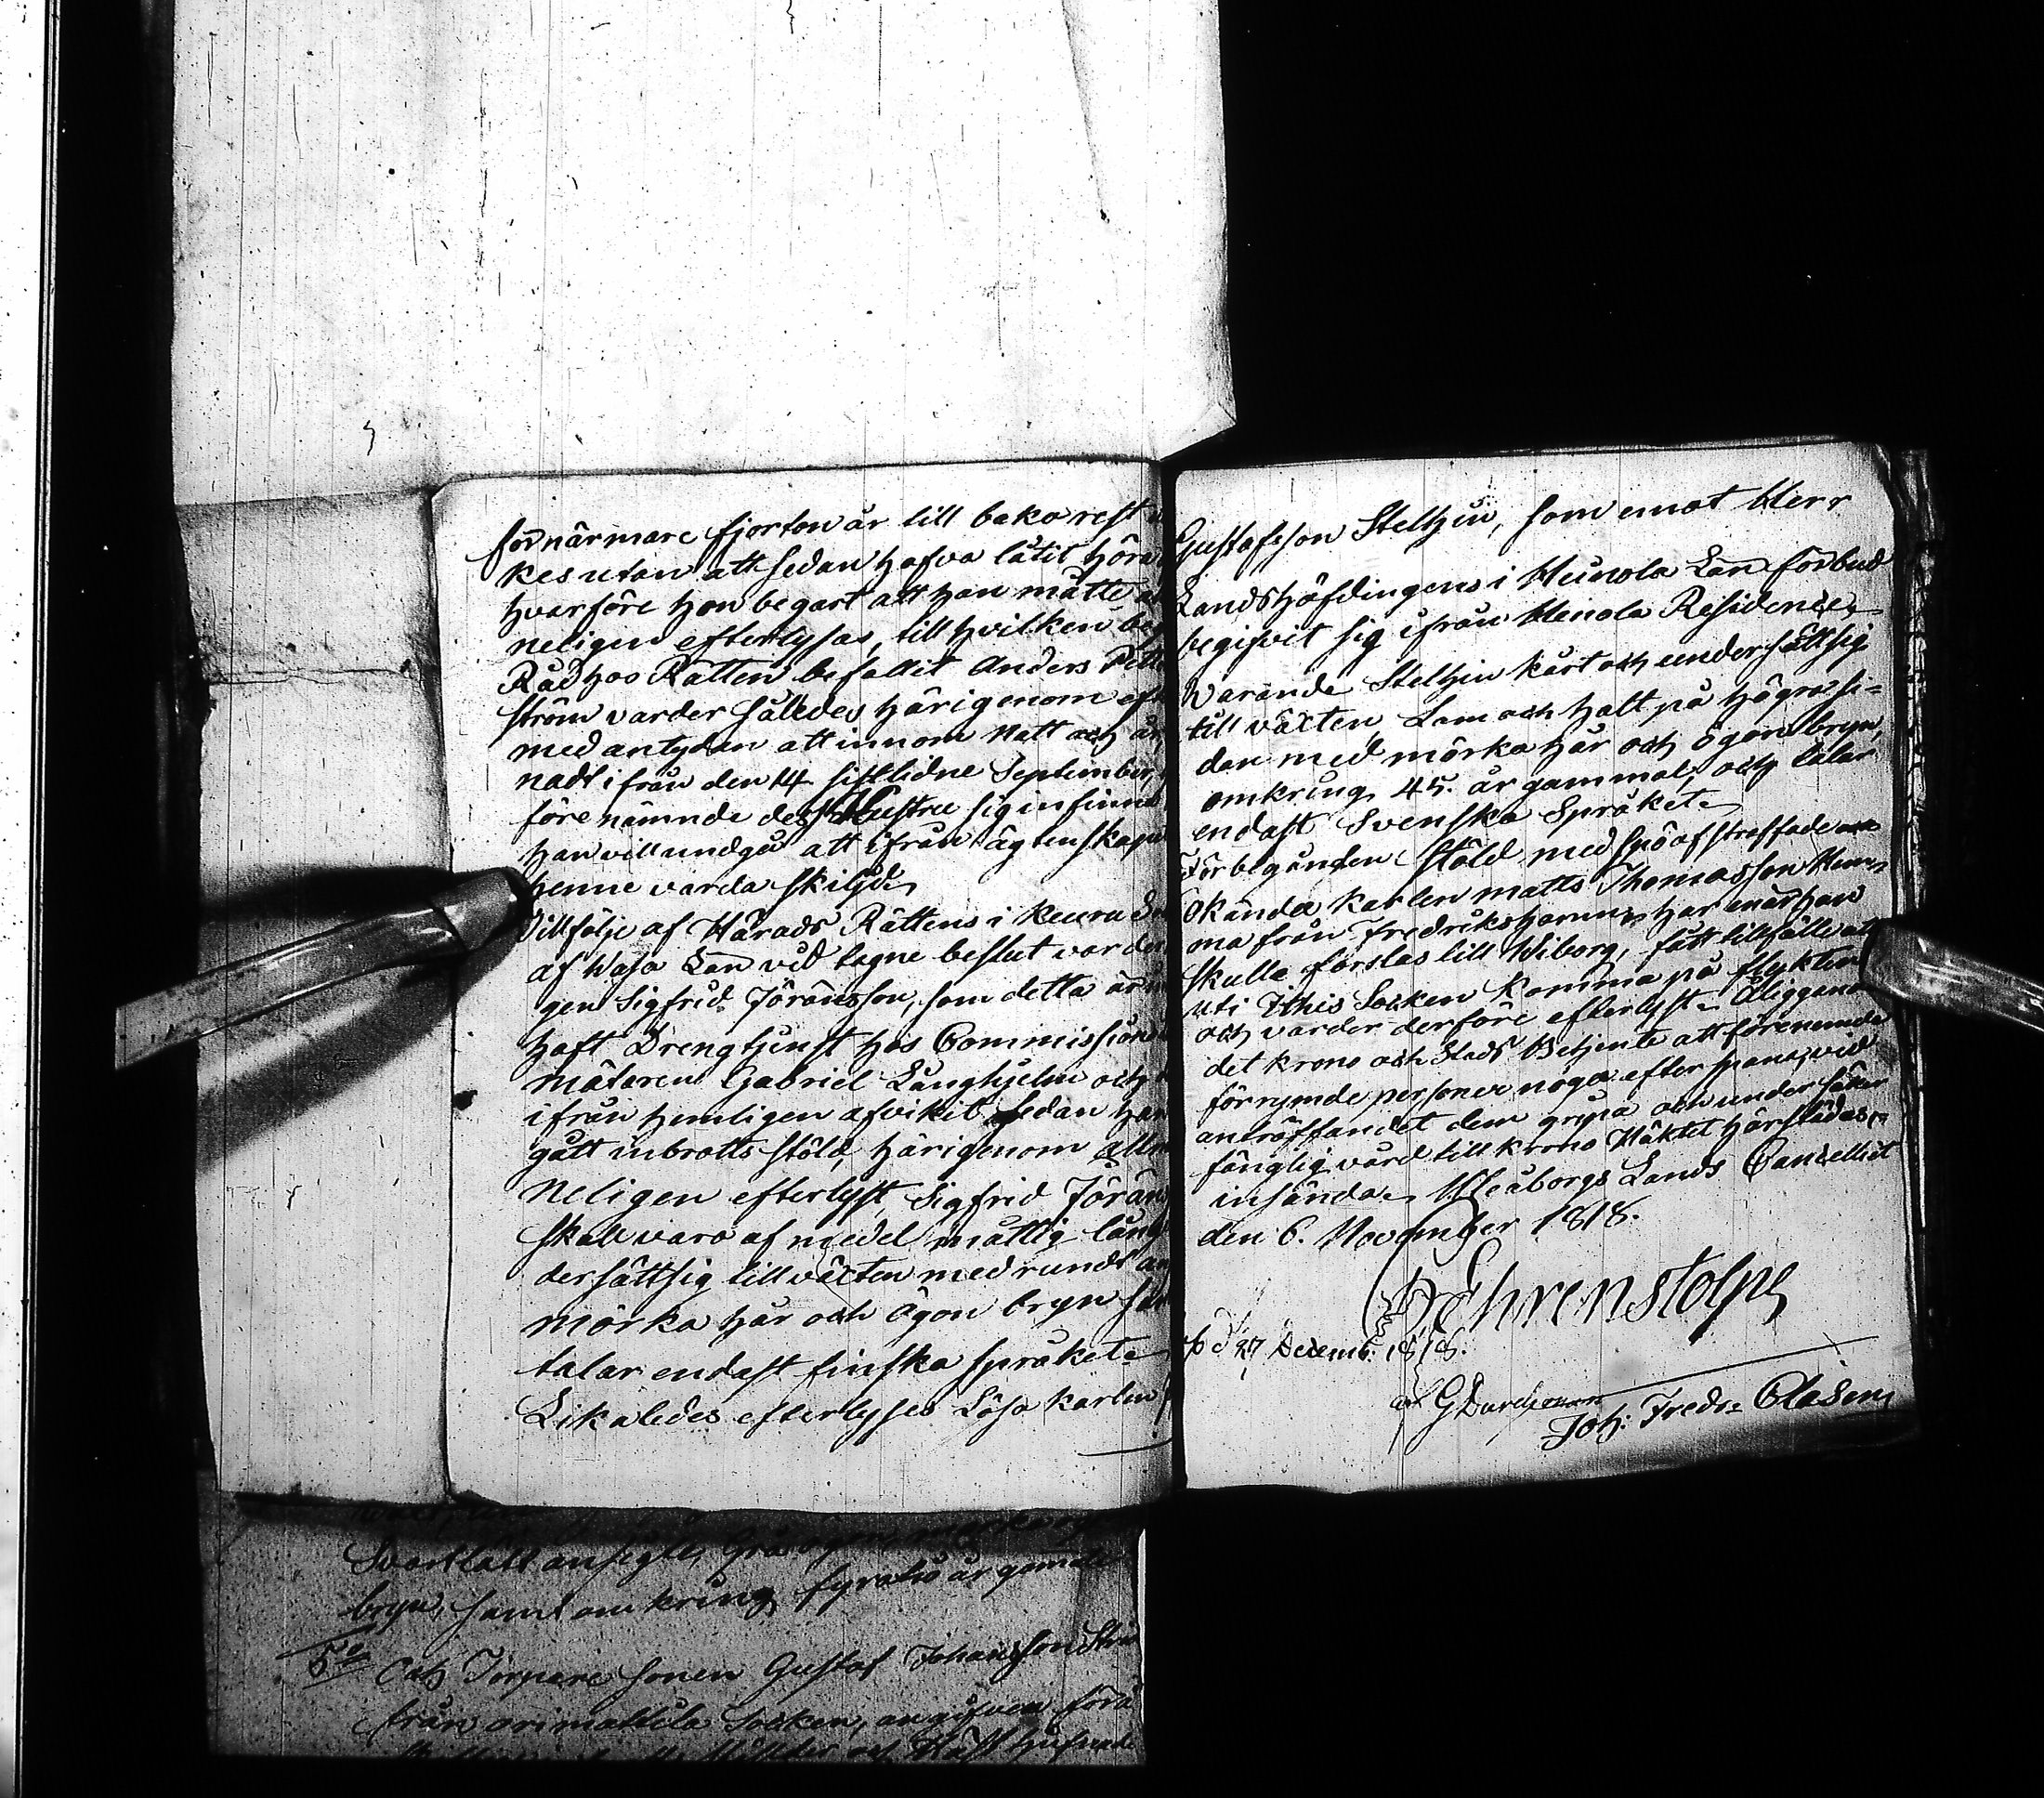 förnärmare fjorton år till baka rest
kes utan att sedan hafva låtit höra
hvarföre hon begärt att han måtte
neligen efterlysas, till hvilken
Rådhus Rätten befallit Anders
ström varder således härigenom eft
med antydan att innom Natt och år,
nadt ifrån den 14 sistlidne September,
före nämnde dess Hustru sig infinna
han vill undgå att ifrån ägtenskapet
henne varda skilgd.
Tillfölje af Härads Rättens i Keuru
af Wasa Län vid tagne beslut varder
gen Sigfrid Jöransson, som detta år
haft Drengtjenst hos Commissions
mätaren Gabriel Långhjelm och
ifrån hemligen afvikit sedan han
gått inbrotts stöld, härigenom allm
neligen efterlyst, Sigfrid Jörans
skall vara af medel måttig läng
dersättsig till växten med rundt an
mörka hår och ögon bryn
talar endast finska språket
Likaledes efterlyses Lösa karlen
Gustafsson Steltzin, som emot Herr
Landshöfdingens i Heinola Län förbud
begifvit sig ifrån Heinola Residence,
varande Steltzin kårt och undersättsig
till växten, Lam och halt på högra si-
dan med mörka hår och ögonbryn,
omkring 45. år gammal, och talar
endast Svenska Språket
För begången stöld med Spö afstraffade
okände karlen Matts Thomasson Hem-
ma från Fredrikshamn, har enär han
skulle forslas till Wiborg, fått tillfälle att
uti Ithis Socken komma på flykten
och varder derföre efterlyst. Åliggande
det krono och Stads Betjente att förenemnde
förrymde personer noga efterspana, vid
anträffandet dem gripa och under säker
fånglig vård till krono Häktet härstädes
insända. Uleåborgs Lands Cancelliet
den 6. November 1818.
Ehrenstolpe
d 27 Decemb. 1818.
Joh: Fredr
Svartlätt ansigte, Grå ögon, mörka
bryn, samt omkring fyratio år gammal
5o
Och Torpare sonen Gustaf Johansson
från orimattila Socken, angifven för